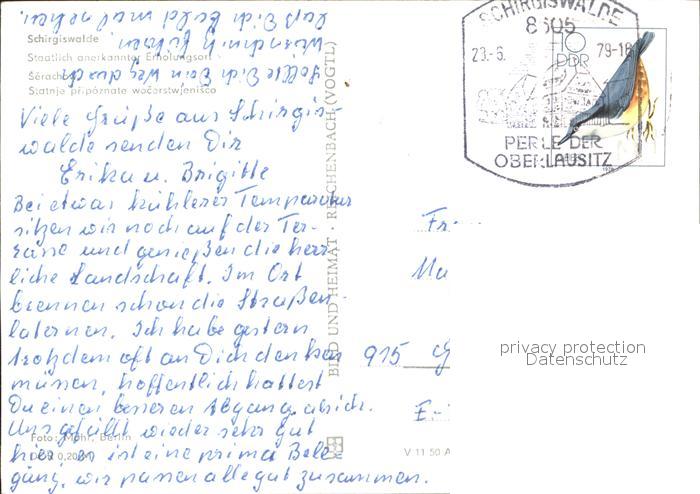 SCHIRGISWALDE
8605
23.-6. 79-18
PERLE DER
OBERLAUSITZ
10
DDR
Schirgiswalde
Staatlich anerkannter Erholungsort
Statnje připóznate wočerstwjenišćo
Viele Grüße aus Schirgis-
walde senden Dir
Erika u. Brigitte
Bei etwas kühlerer Temperatur
sitzen wir noch auf der Ter-
rasse und genießen die herr-
liche Landschaft. Im Ort
brennen schon die Straßen-
laternen. Ich habe gestern
trotzdem oft an Dich denken
müssen, hoffentlich hattest
Du einen besseren Abgang als ich.
Uns gefällt wieder sehr gut
hier, es ist eine prima Bele-
gung, wir passen alle gut zusammen.
Foto: Mohr, Berlin
BILD UND HEIMAT · REICHENBACH (VOGTL)
V 11 50 A
Fr.
915
privacy protection
Datenschutz